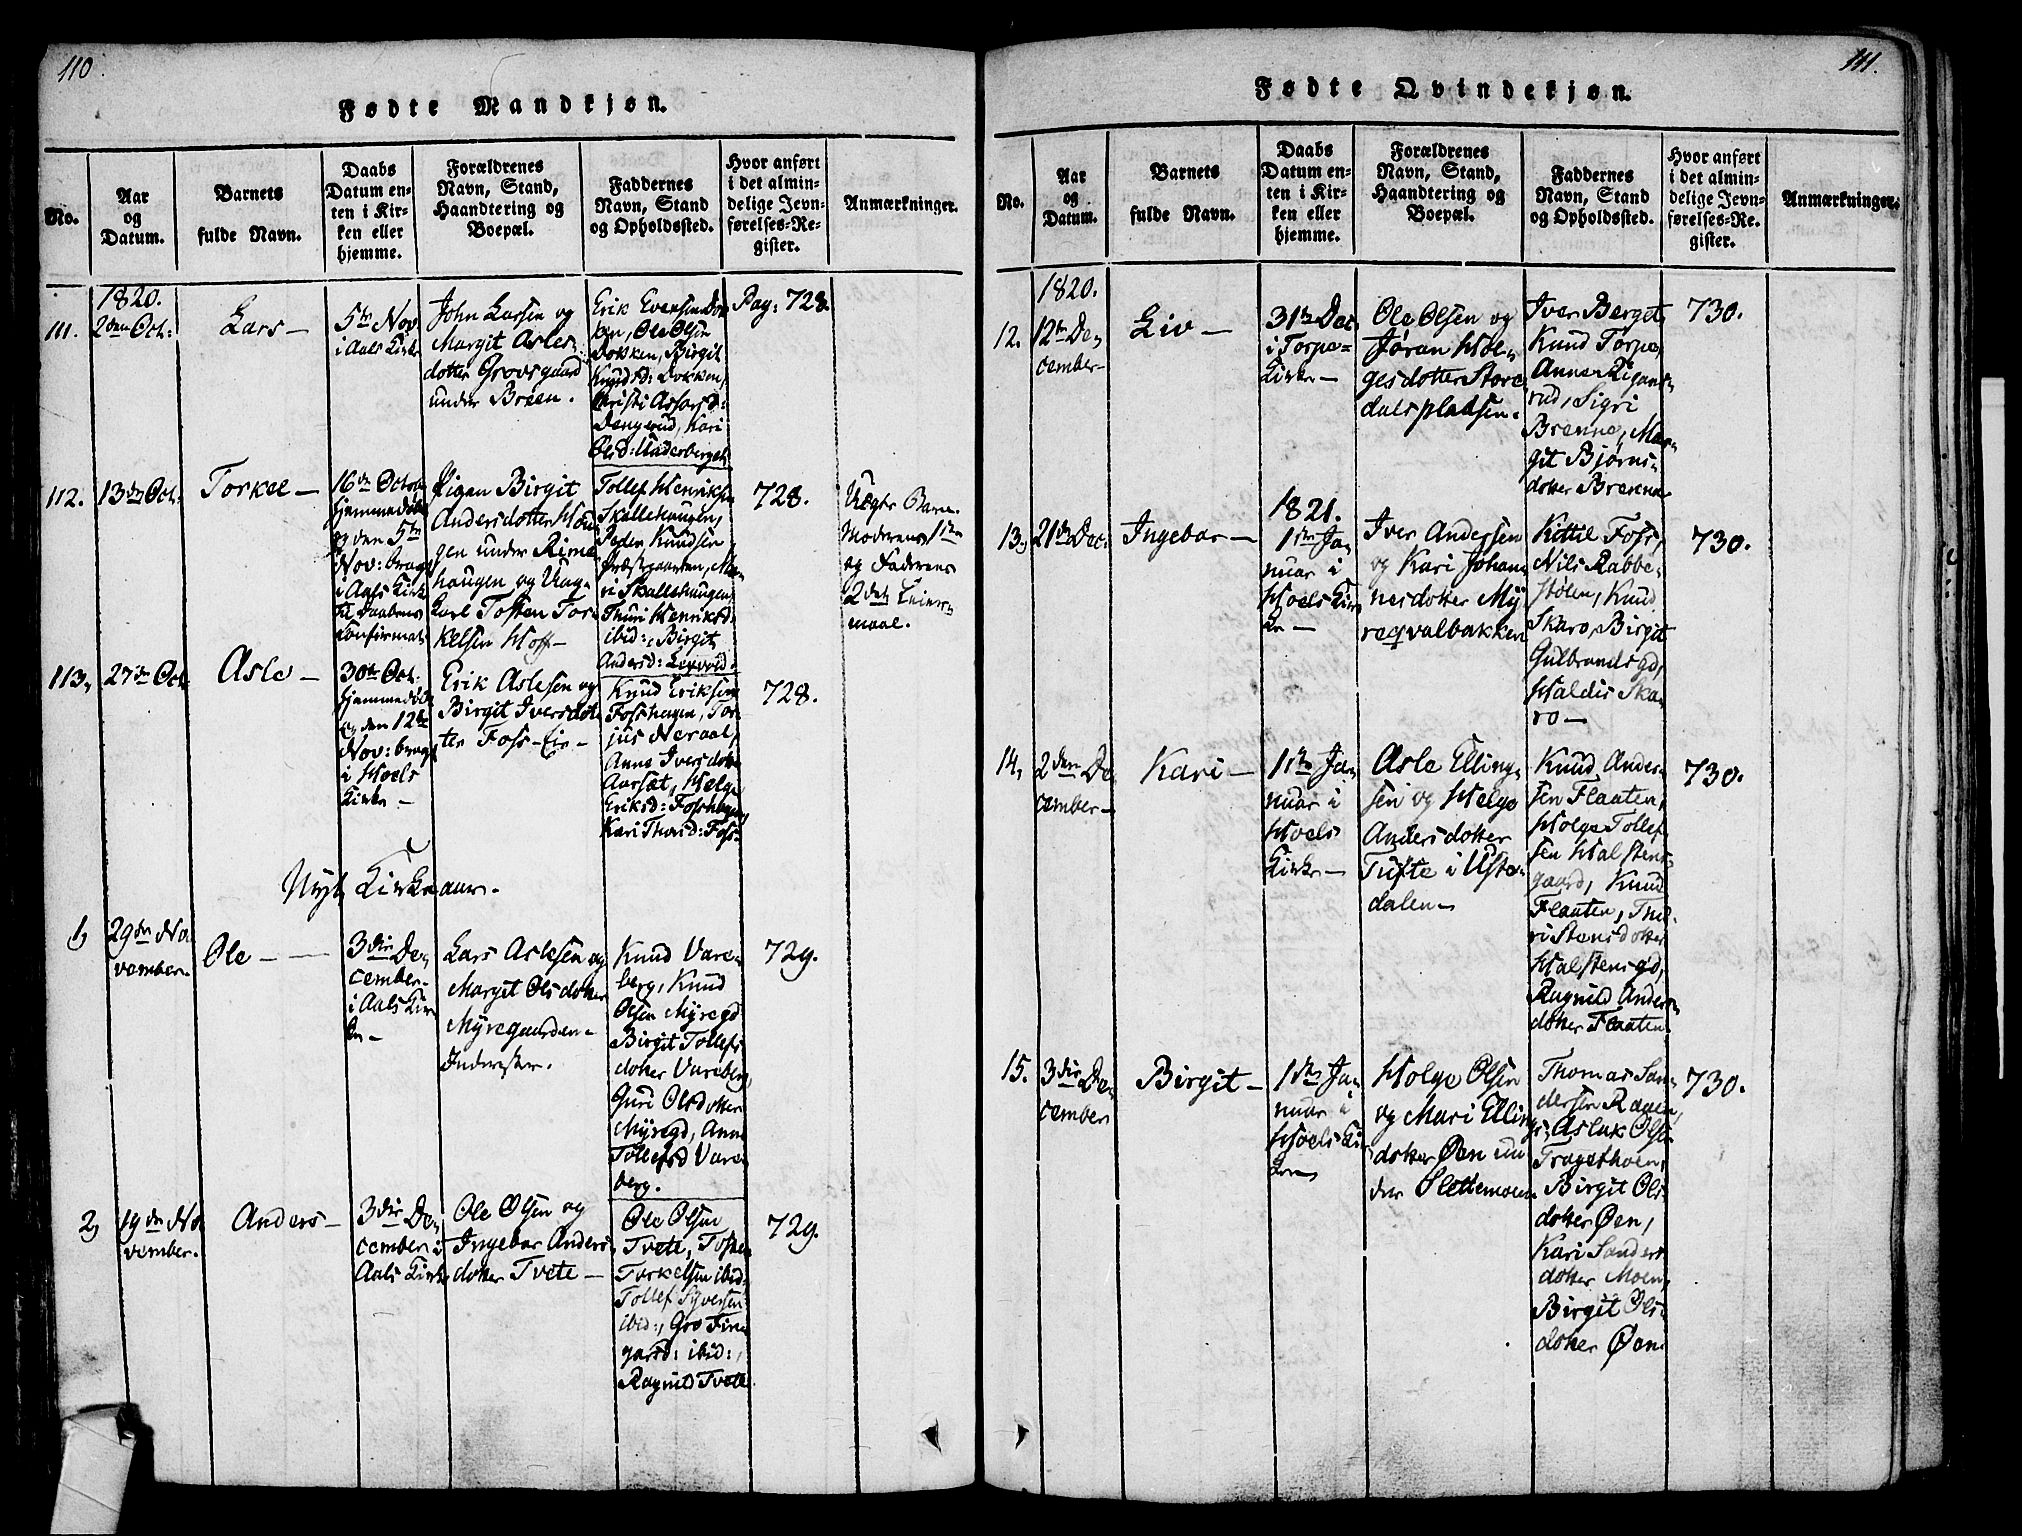 110.
Fødte Mandkjøn.
No.
Aar
og
Datum.
Barnets
fulde Navn.
Daabs
Datum en-
ten i Kir-
ken eller
hjemme.
Forældrenes
Navn, Stand,
Haandtering og
Boepæl.
Faddernes
Navn, Stand
og Opholdssted.
Hvor anført
i det almin-
delige Jevn-
førelses-Re-
gister.
Anmærkninger.
1820.
111.
2den Oct:
Lars —
5te Nov
i Aals Kirke
John Larsen og
Margit Asles-
dotter Grovsgaard
under Breen.
Erik Evensen Dok
ken, Ole Olsen
Dokken, Birgit
Knudsd: Dokken,
Christi Assorsd:
Dengerud, Kari
Olsd: Underberget
Pag: 728.
112.
13de Oct:
Torkel —
16de Octob
hjemmedøbt
og den 5te
Nov: bragt
i Aals Kirke
til Daabens
Confirmat:
Pigen Birgit
Andersdotter Hou
gen under Rime
haugen og Ung-
karl Tosten Tor-
kelsen Hoff —
Tollef Henriksen
Skallehaugen,
Peder Knudsen
Præstgaarden, Ma-
ri Skallehaugen,
Thuri Henriksd:
ibid:, Birgit
Andersd: Leqvold
728.
Uægte Barn.
Moderens 1ste
og Faderens
2det Leier-
maal.
113,
27de Oct.
Asle —
30te Oct.
hjemmedøbt
og den 12te
Nov: bragt
i Hoels
Kirke —
Erik Aslesen og
Birgit Iversdot
ter Foss-Eie —
Knud Eriksen
Fosshagen, Tor-
jus Neraal,
Anne Iversdotter
Aarsæt, Helge
Eriksd: Fosshagen
Kari Thorsd: Foss
728.
Nyt Kirkeaar.
1,
29de No-
vember.
Ole —
3die De-
cember.
i Aals Kir
ke —
Lars Aslesen og
Margit Olsdotter
Myregaarden —
Inderster.
Knud Vare-
berg, Knud
Olsen Myregd
Birgit Tollefs
dotter Vareberg,
Guri Olsdotter
Myregd, Anne
Tollefsd Vare-
berg.
729.
2,
19de No-
vember.
Anders —
3die De-
cember i
Aals Kirke
Ole Olsen og
Ingebor Anders
dotter Tvete —
Ole Olsen
Tvete, Tosten
Torkelsen ibid:
Tollef Syversen
ibid:, Gro Fin-
garsd: ibid:,
Ragnild Tvete
729.
111.
Fødte Qvindekjøn.
No.
Aar
og
Datum.
Barnets
fulde Navn.
Daabs
Datum en-
ten i Kir-
ken eller
hjemme.
Forældrenes
Navn, Stand,
Haandtering og
Boepæl.
Faddernes
Navn, Stand
og Opholdssted.
Hvor anført
i det almin-
delige Jevn-
førelses-Re-
gister.
Anmærkninger.
1820.
12.
12te De-
cember —
Liv —
31te Dec.
i Torpe-
Kirke —
Ole Olsen og
Jøran Hol-
gesdotter Store
dalspladsen.
Iver Berget,
Knud Torpe,
Anne Rigans-
rud, Sigri
Brenne, Mar-
git Bjørns-
dotter Brenne
730.
13,
21de Dec:
Ingebor —
1821.
1ste Ja-
nuar i
Hoels Kir
ke —
Iver Andersen
og Kari Johan
nesdotter My
reqvalbakken
Kittil Foss,
Nils Rabbe-
stølen, Knud
Skaro, Birgit
Gulbrandsgd,
Haldis Ska-
ro —
730.
14,
2den De-
cember —
Kari —
1ste Ja-
nuar i
Hoels
Kirke —
Asle Elling-
sen og Helge
Andersdotter
Tufte i Uste-
dalen —
Knud Ander-
sen Flaaten,
Holge Tollef
sen Halstens-
gaard, Knud
Flaaten, Thu-
ri Stensdotter
Halstensgd,
Ragnild Anders
dotter Flaaten
730.
15.
3die De-
cember
Birgit —
1ste Ja-
nuar i
Hoels Kir
ke —
Holge Olsen
og Mari Ellings
dotter Øen un
der Slettemoen
Thomas San-
dersen Raaen,
Asluk Olsen
Tragethoen,
Birgit Ols-
dotter Øen,
Kari Sanders
dotter Moen,
Birgit Ols-
dotter Øen
730.